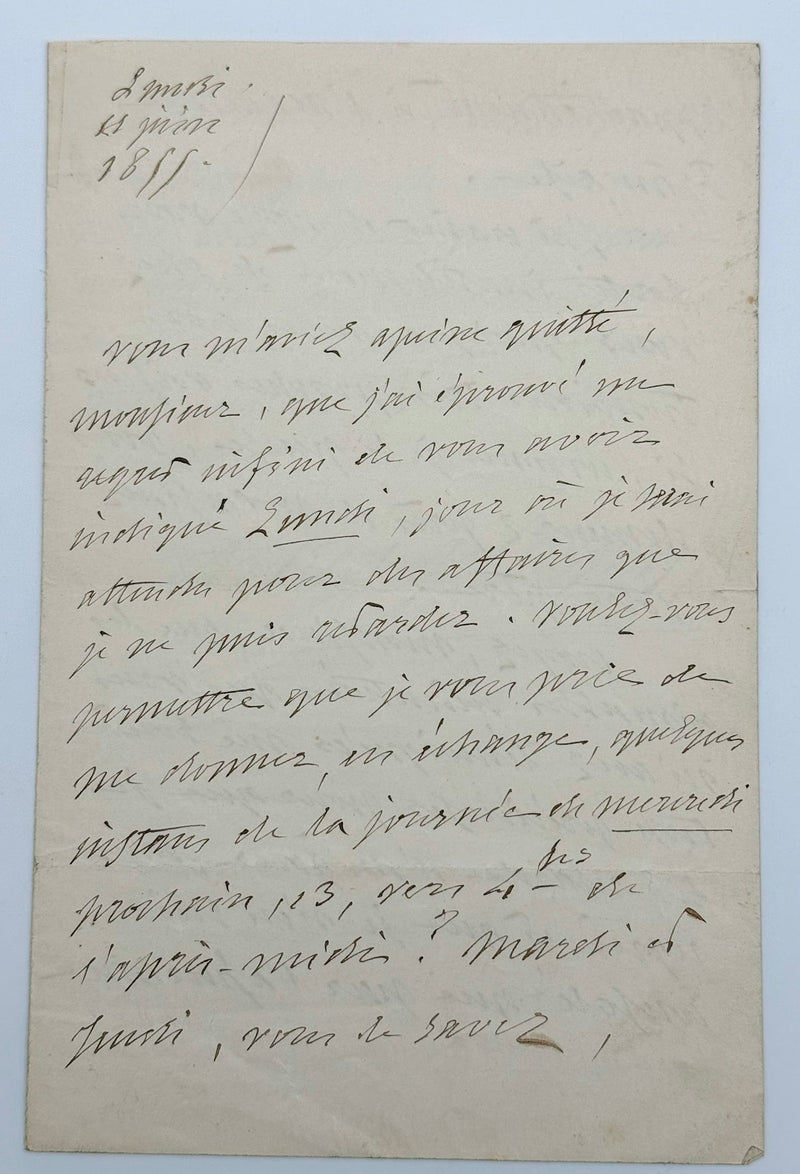 Lundi.
11 juin
1855.
vous m'aviez apeine quitté,
monsieur, que j'ai éprouvé un
regret infini de vous avoir
indiqué Lundi, jour où je serai
attendu pour des affaires que
je ne puis retarder. voulez-vous
permettre que je vous prie de
me donner, en échange, quelques
instans de la journée de mercredi
prochain, 13, vers 4 hes de
l'après-midi ? Mardi et
Jeudi, vous le savez,